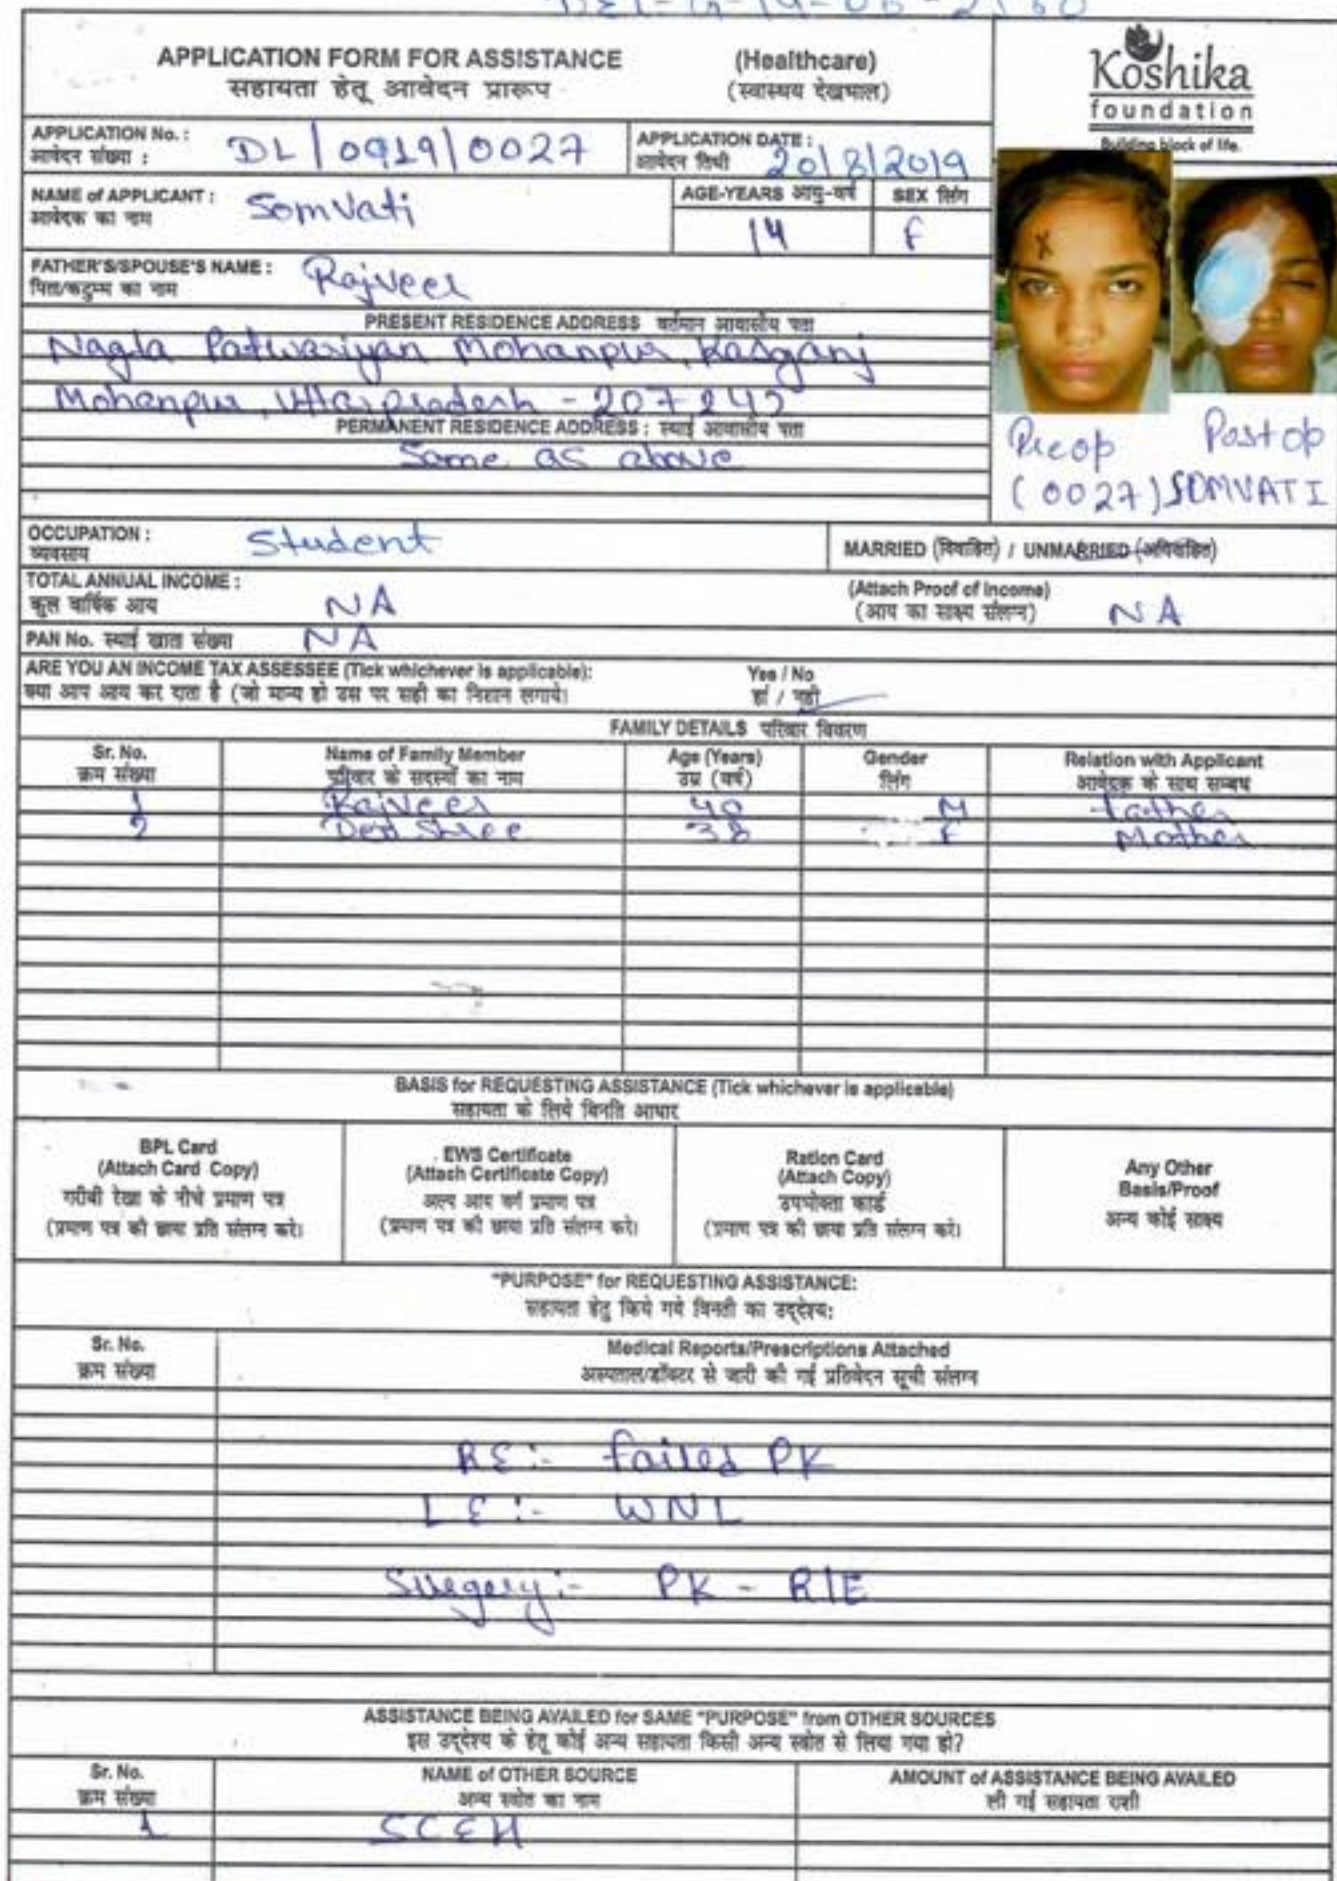 APPLICATION FORM FOR ASSISTANCE (Healthcare)
सहायता हेतू आवेदन प्रारूप (स्वास्थय देखभाल)
Koshika
foundation
Building block of life.
APPLICATION No. : DL/0919/0027 APPLICATION DATE : 20/8/2019
आवेदन संख्या : आवेदन तिथी
NAME of APPLICANT : Somvati AGE-YEARS आयु-वर्ष SEX लिंग
आवेदक का नाम 14 F
FATHER'S/SPOUSE'S NAME : Rajveer
पिता/कटुम्ब का नाम
PRESENT RESIDENCE ADDRESS वर्तमान आवासीय पता
Nagla Patwariyan Mohanpur, Kasganj
Mohanpur, Uttarpradesh - 207242
PERMANENT RESIDENCE ADDRESS : स्थाई आवासीय पता
Same as above
Preop Postop
(0027) SOMVATI
OCCUPATION : Student MARRIED (विवाहित) / UNMARRIED (अविवाहित)
व्यवसाय
TOTAL ANNUAL INCOME : NA (Attach Proof of Income) NA
कुल वार्षिक आय (आय का साक्ष्य संलग्न)
PAN No. स्थाई खाता संख्या NA
ARE YOU AN INCOME TAX ASSESSEE (Tick whichever is applicable): Yes / No
क्या आप आय कर दाता है (जो मान्य हो उस पर सही का निशान लगाये। हां / नही
FAMILY DETAILS परिवार विवरण
Sr. No. Name of Family Member Age (Years) Gender Relation with Applicant
क्रम संख्या परिवार के सदस्यों का नाम उम्र (वर्ष) लिंग आवेदक के साथ सम्बध
1 Rajveer 40 M Father
2 Shree 38 F Mother
BASIS for REQUESTING ASSISTANCE (Tick whichever is applicable)
सहायता के लिये विनति आधार
BPL Card
(Attach Card Copy)
गरीबी रेखा के नीचे प्रमाण पत्र
(प्रमाण पत्र की छाया प्रति संलग्न करे।
EWS Certificate
(Attach Certificate Copy)
अल्प आय वर्ग प्रमाण पत्र
(प्रमाण पत्र की छाया प्रति संलग्न करे।
Ration Card
(Attach Copy)
उपभोक्ता कार्ड
(प्रमाण पत्र की छाया प्रति संलग्न करे।
Any Other
Basis/Proof
अन्य कोई साक्ष्य
"PURPOSE" for REQUESTING ASSISTANCE:
सहायता हेतु किये गये विनती का उद्देश्य:
Sr. No. Medical Reports/Prescriptions Attached
क्रम संख्या अस्पताल/डॉक्टर से जारी की गई प्रतिवेदन सूची संलग्न
RE:- Failed PK
LE:- WNL
Surgery:- PK - RIE
ASSISTANCE BEING AVAILED for SAME "PURPOSE" from OTHER SOURCES
इस उद्देश्य के हेतू कोई अन्य सहायता किसी अन्य स्त्रोत से लिया गया हो?
Sr. No. NAME of OTHER SOURCE AMOUNT of ASSISTANCE BEING AVAILED
क्रम संख्या अन्य स्त्रोत का नाम ली गई सहायता राशी
1 SCEH